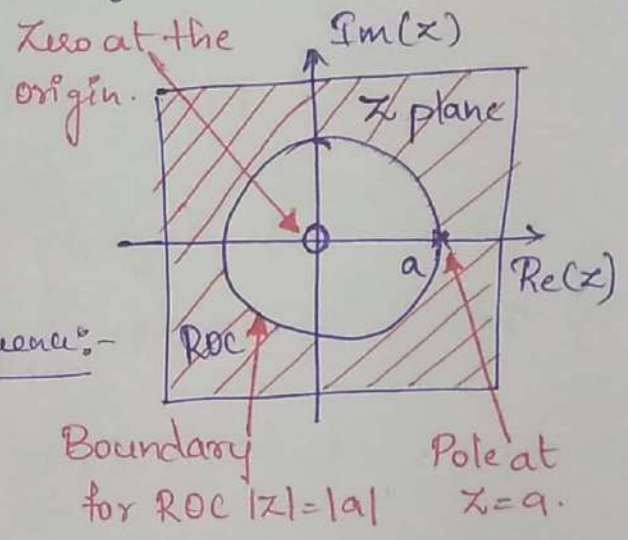 Zero at the
origin.
Im(z)
z plane
a
Re(z)
ROC
Boundary
for ROC |z|=|a|
Pole at
z=a.